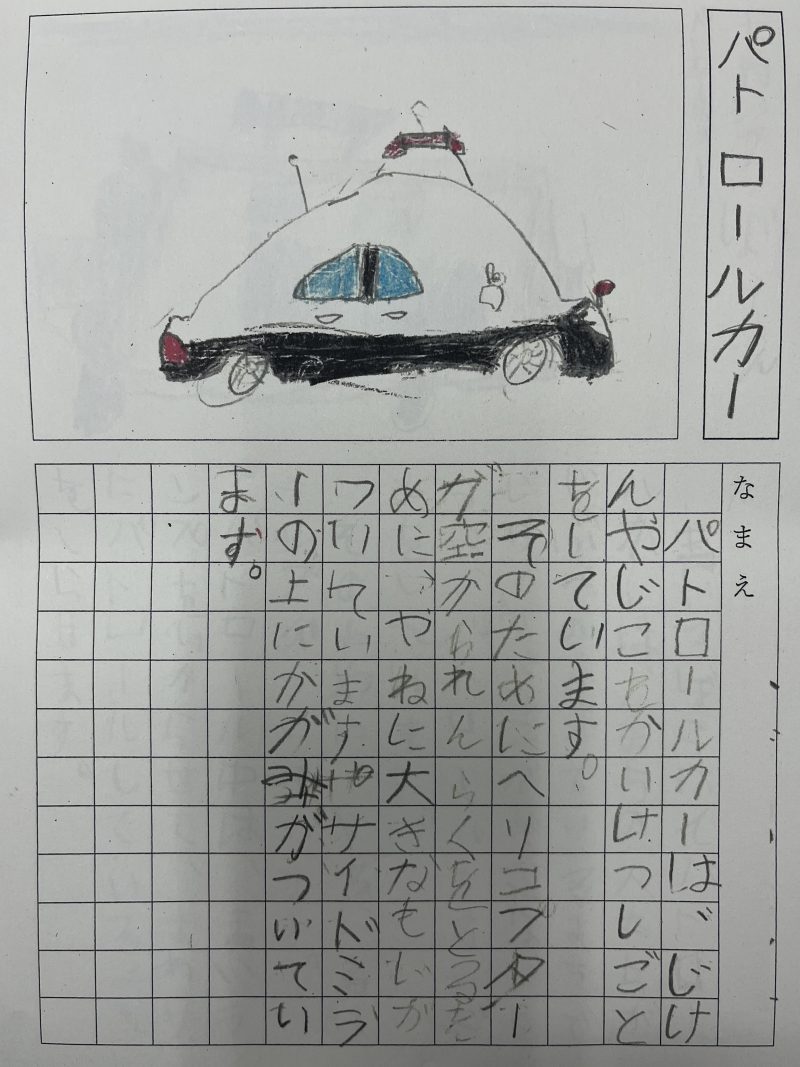 パトロールカー
なまえ
パトロールカーは、じけ
んやじこをかいけつしごと
をしています。
そのためにヘリコプター
が空かられんらくをとるた
めに、やねに大きなもじが
ついています。サイドミラ
ーの上にかがみがついてい
ます。